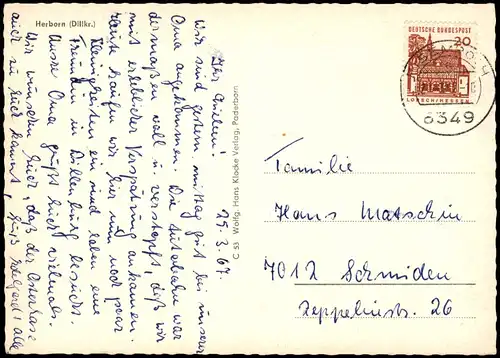 Herborn (Dillkr.)
29.3.67
Ihr Lieben!
Wir sind gestern mittag gut bei unserer
Oma angekommen. Die Autobahn war
dermaßen voll u. verstopft, daß wir
mit erheblicher Verspätung ankamen.
Heute kaufen wir hier nun noch paar
Kleinigkeiten ein und haben eine
Freundin in Dillenburg besucht.
Unsere Oma grüßt Euch vielmals.
Wir wünschen Euch, daß der Osterhase
auch zu Euch kommt,
C 53 Wolfg. Hans Klocke Verlag, Paderborn
DEUTSCHE BUNDESPOST
20
LORSCH/HESSEN
6349
Familie
Hans Matschin
7012 Schmiden
Zeppelinstr. 26